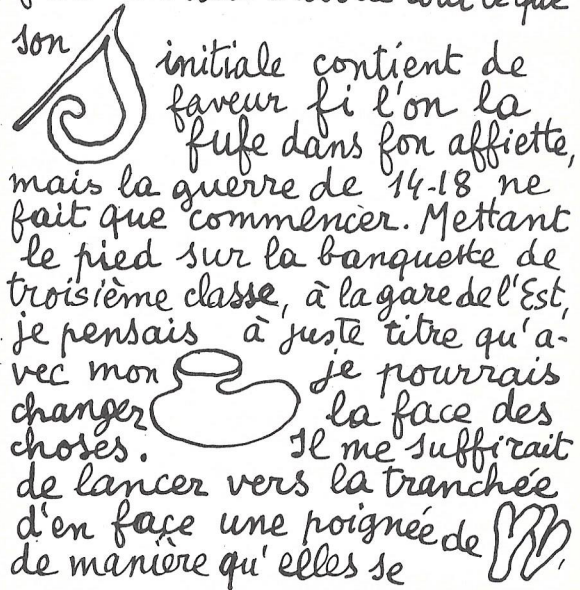 tout ce que
son
initiale contient de
faveur fi l'on la
fufe dans fon affiette,
mais la guerre de 14-18 ne
fait que commencer. Mettant
le pied sur la banquette de
troisième classe, à la gare de l'Est,
je pensais à juste titre qu'a-
vec mon je pourrais
changer la face des
choses. Il me suffirait
de lancer vers la tranchée
d'en face une poignée de
de manière qu'elles se